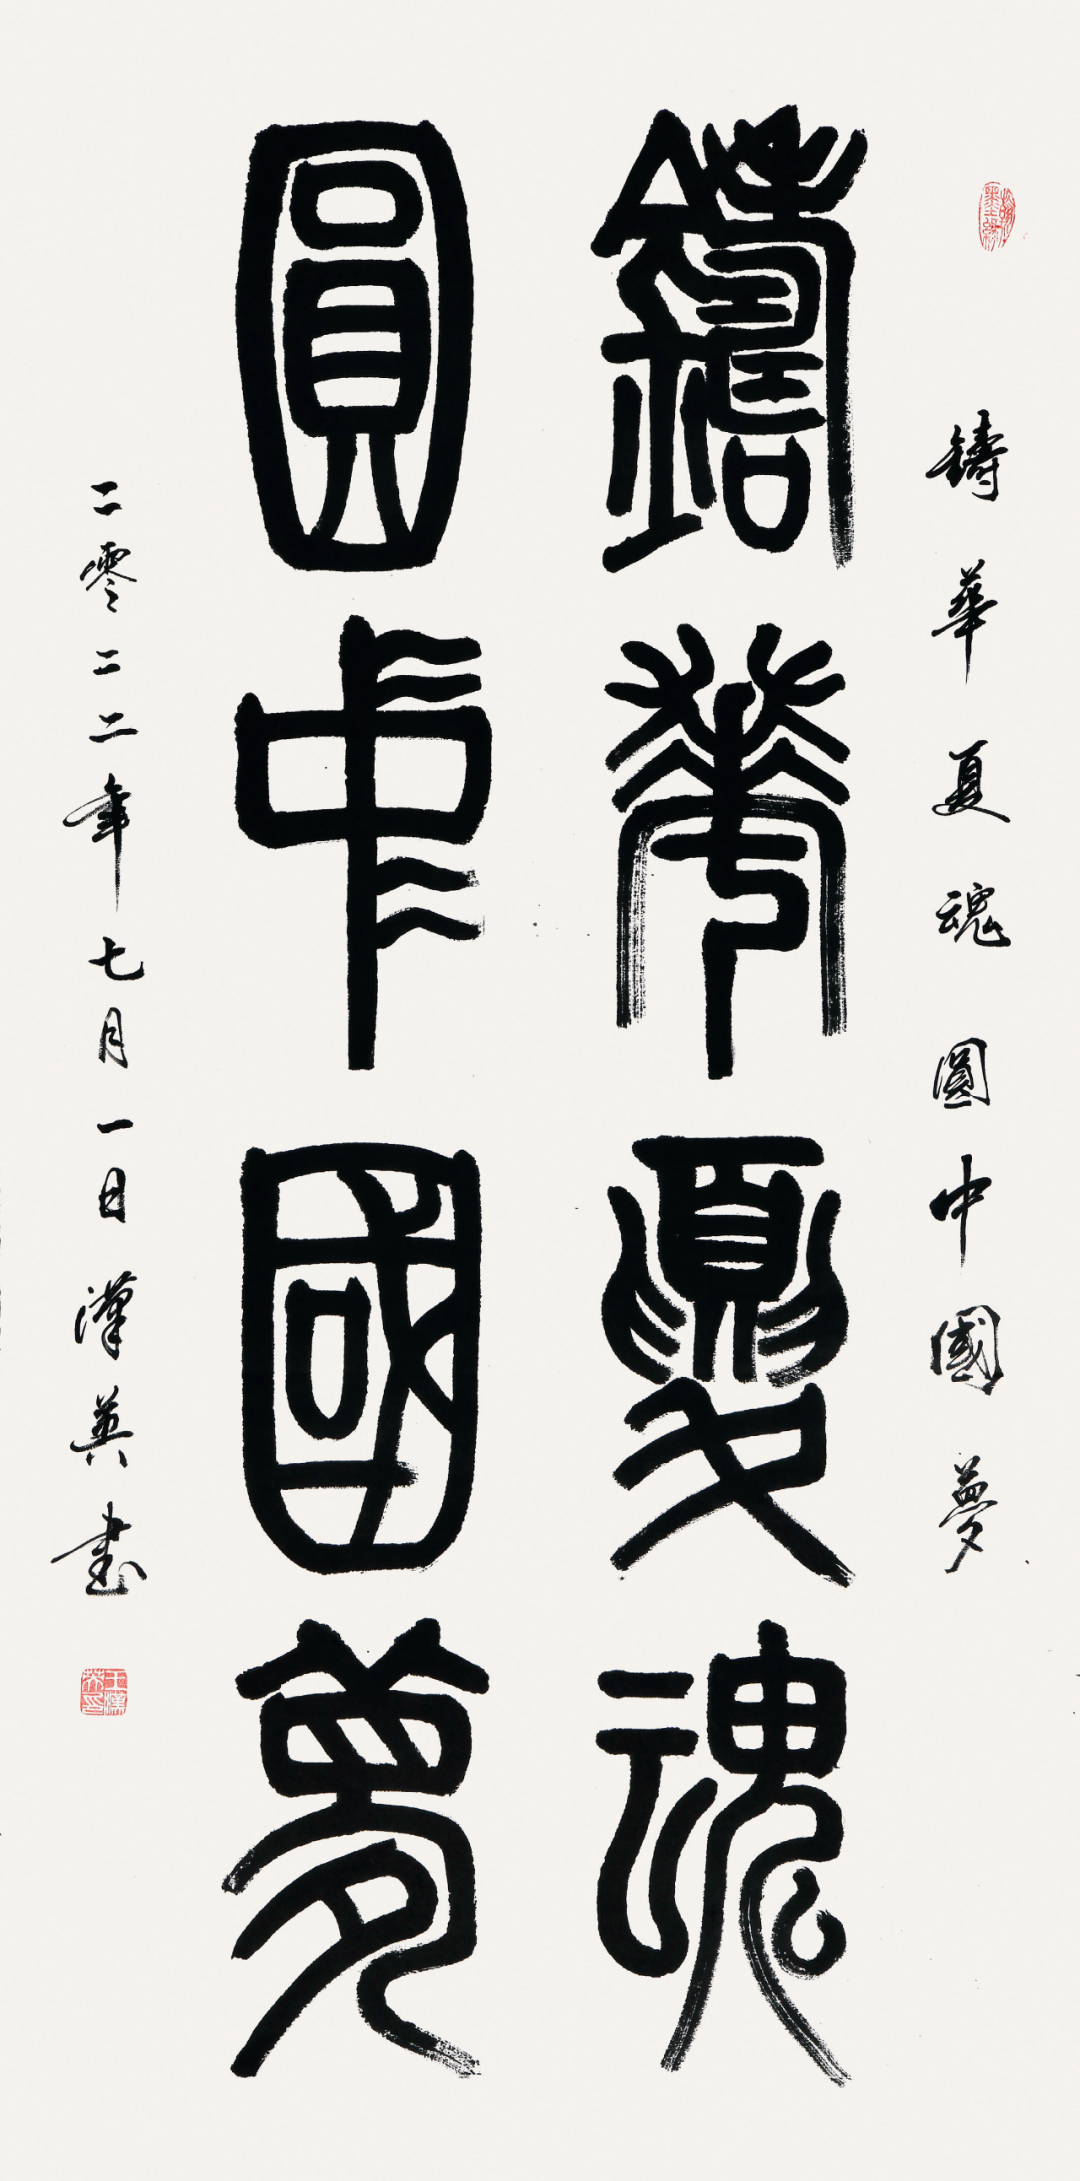 鑄華夏魂圓中國夢
鑄華夏魂
圓中國夢
二零二二年七月一日漢英書
王漢英印